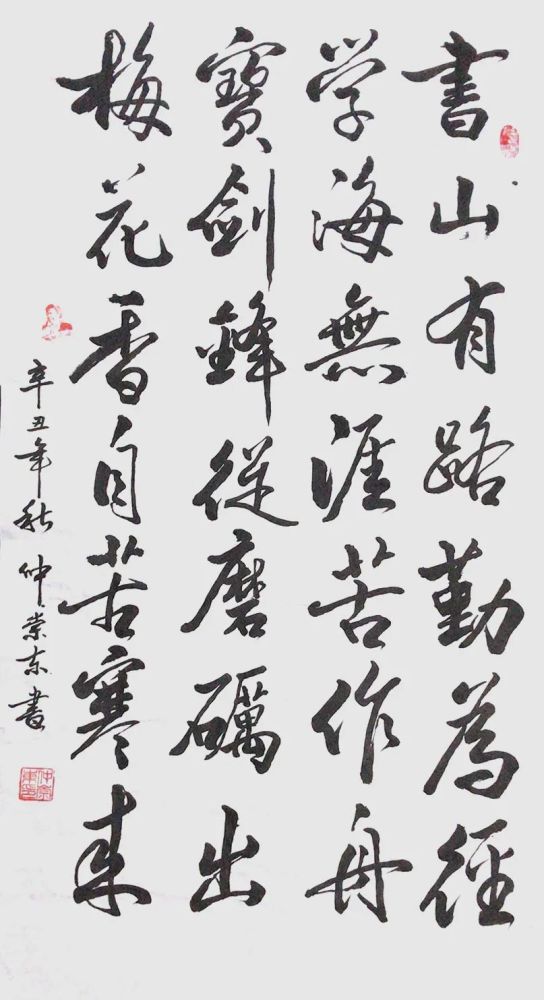 書山有路勤為徑
学海無涯苦作舟
寶劍鋒從磨礪出
梅花香自苦寒来
辛丑年秋 仲崇东書